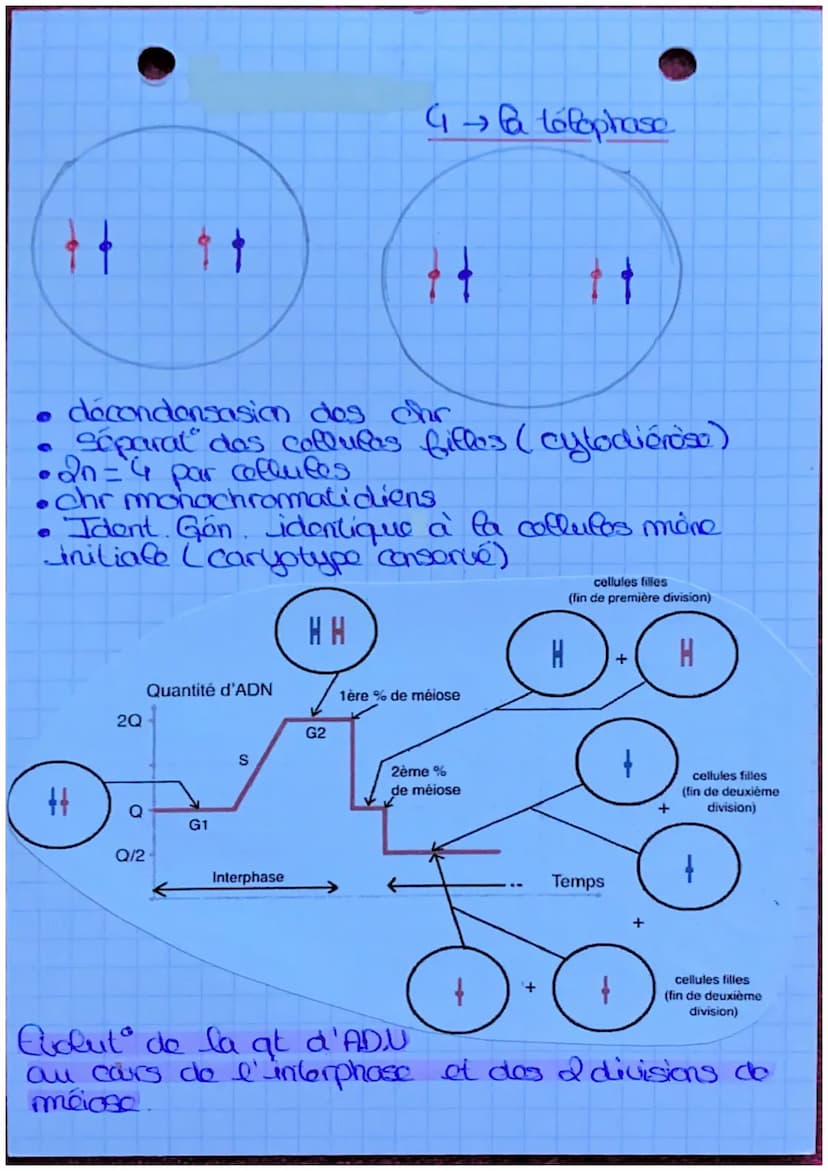 4 → la télophase
• décondensasion des chr
• Séparat° des cellules filles (cytodiérèse)
• 2n = 4 par cellules
• chr monochromatidiens
• Ident. Gén. identique à la cellules mère
initiale (caryotype conservé)
cellules filles
(fin de première division)
+
Quantité d'ADN
1ère % de méiose
2Q
G2
S
2ème %
de méiose
cellules filles
(fin de deuxième
division)
+
Q
G1
Q/2
Interphase
Temps
+
+
cellules filles
(fin de deuxième
division)
Evolut° de la qt d'ADN
au cours de l'interphase et des 2 divisions de
méiose.